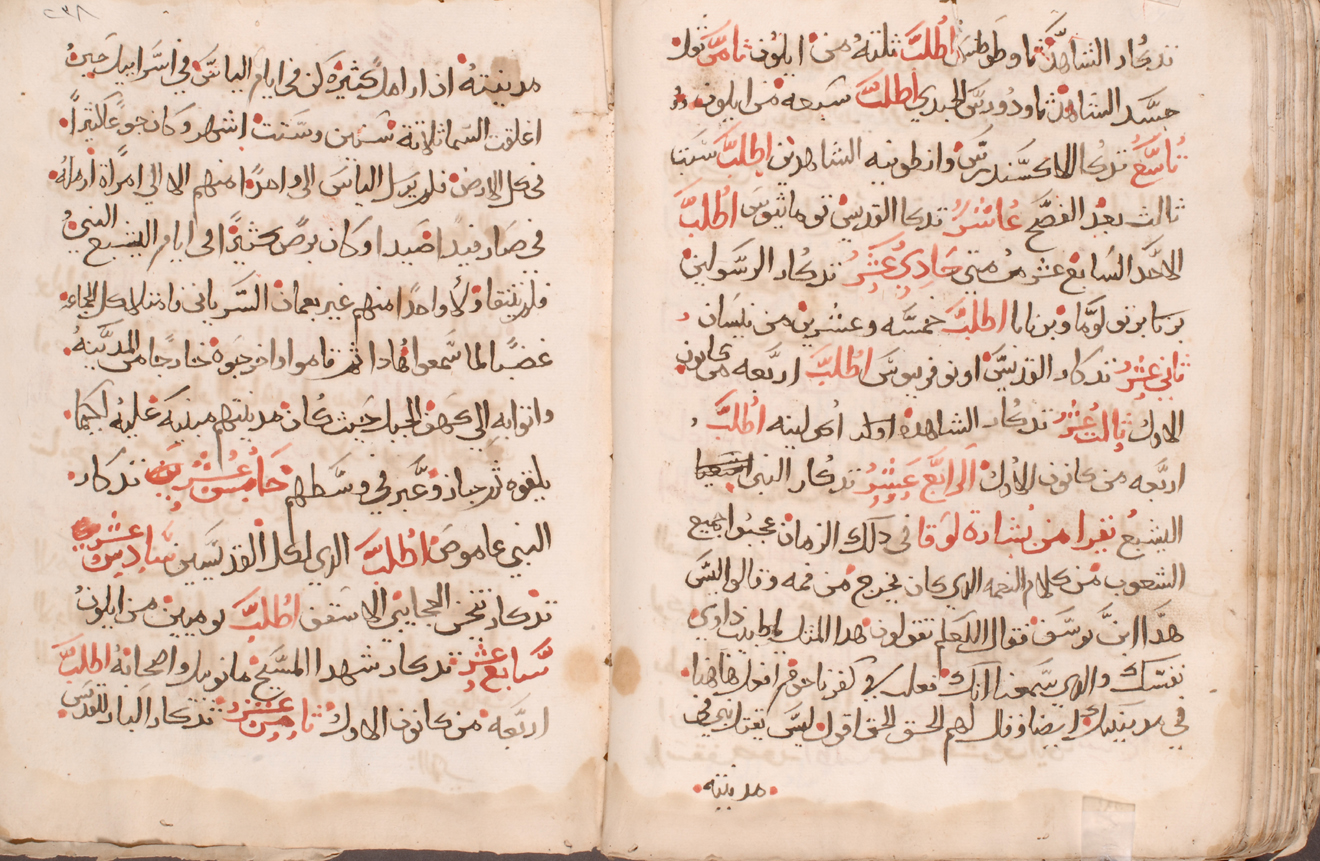 تدكار الشاهد تاوطوطس اطلب ثلثه من ايلون ثامن نعل
جسد الشاهد تاودورس الجندي اطلب سبعه من ايلون
تاسع تدكار الاكسندرس وانطونيه الشاهدين اطلب سبت
ثالث بعد الفصح عاشر تدكار القديس تيماثيوس اطلب
الاحد السابع عشر من متى حادي عشر تدكار الرسولين
برتلوماوس وبرنابا اطلب خمسه وعشرين من نيسان
ثاني عشر تدكار القديس اونوفريوس اطلب اربعه من كانون
الاول ثالث عشر تدكار الشاهده اكيلينه اطلب
اربعه من كانون الاول الرابع عشر تدكار النبي
اليشيع تقرا من بشارة لوقا في دلك الزمان عجبوا جميع
الشعوب من كلام النعمه الدي كان يخرج من فمه وقالوا اليس
هدا ابن يوسف فقال لعلكم تقولون هدا المثل ياطبيب داوي
نفسك والدي سمعنا انك فعلت في كفرناحوم افعل هاهنا
في مدينتك ايضا وقال لهم الحق الحق اقول ليس يقبل نبي في
مدينته
٢٣٨
مدينته اد ارامل كثيرة كن في ايام الياس في اسراييل حين
اغلقت السما ثلاثة سنين وستت اشهر وكان جوعا كثيرا
في كل الارض فلم يرسل الياس الى واحدة منهم الا الى امراة ارمله
في صارفيد اصيدا وكان برص كثيرا في ايام اليشيع النبي
فلم يتنقا ولا واحدا منهم غير نعمان السرياني وامتلا كل الجماعه
غضبا لما سمعوا هادا ثم قاموا واخرجوه خارجا من المدينه
واتوا به الى كهف الجبل حيث كان مدينتهم مبنيه عليه لكيما
يلقوه ثم جاز وعبر في وسطهم خامس عشر تدكار
النبي عاموص اطلب الدي لكل القديسين سادس عشر
تدكار تيخن العجايبي الاسقف اطلب يومين من ايلون
سابع عشر تدكار شهدا المسيح مانويل واصحابه اطلب
اربعه من كانون الاول ثامن عشر تدكار البار القديس